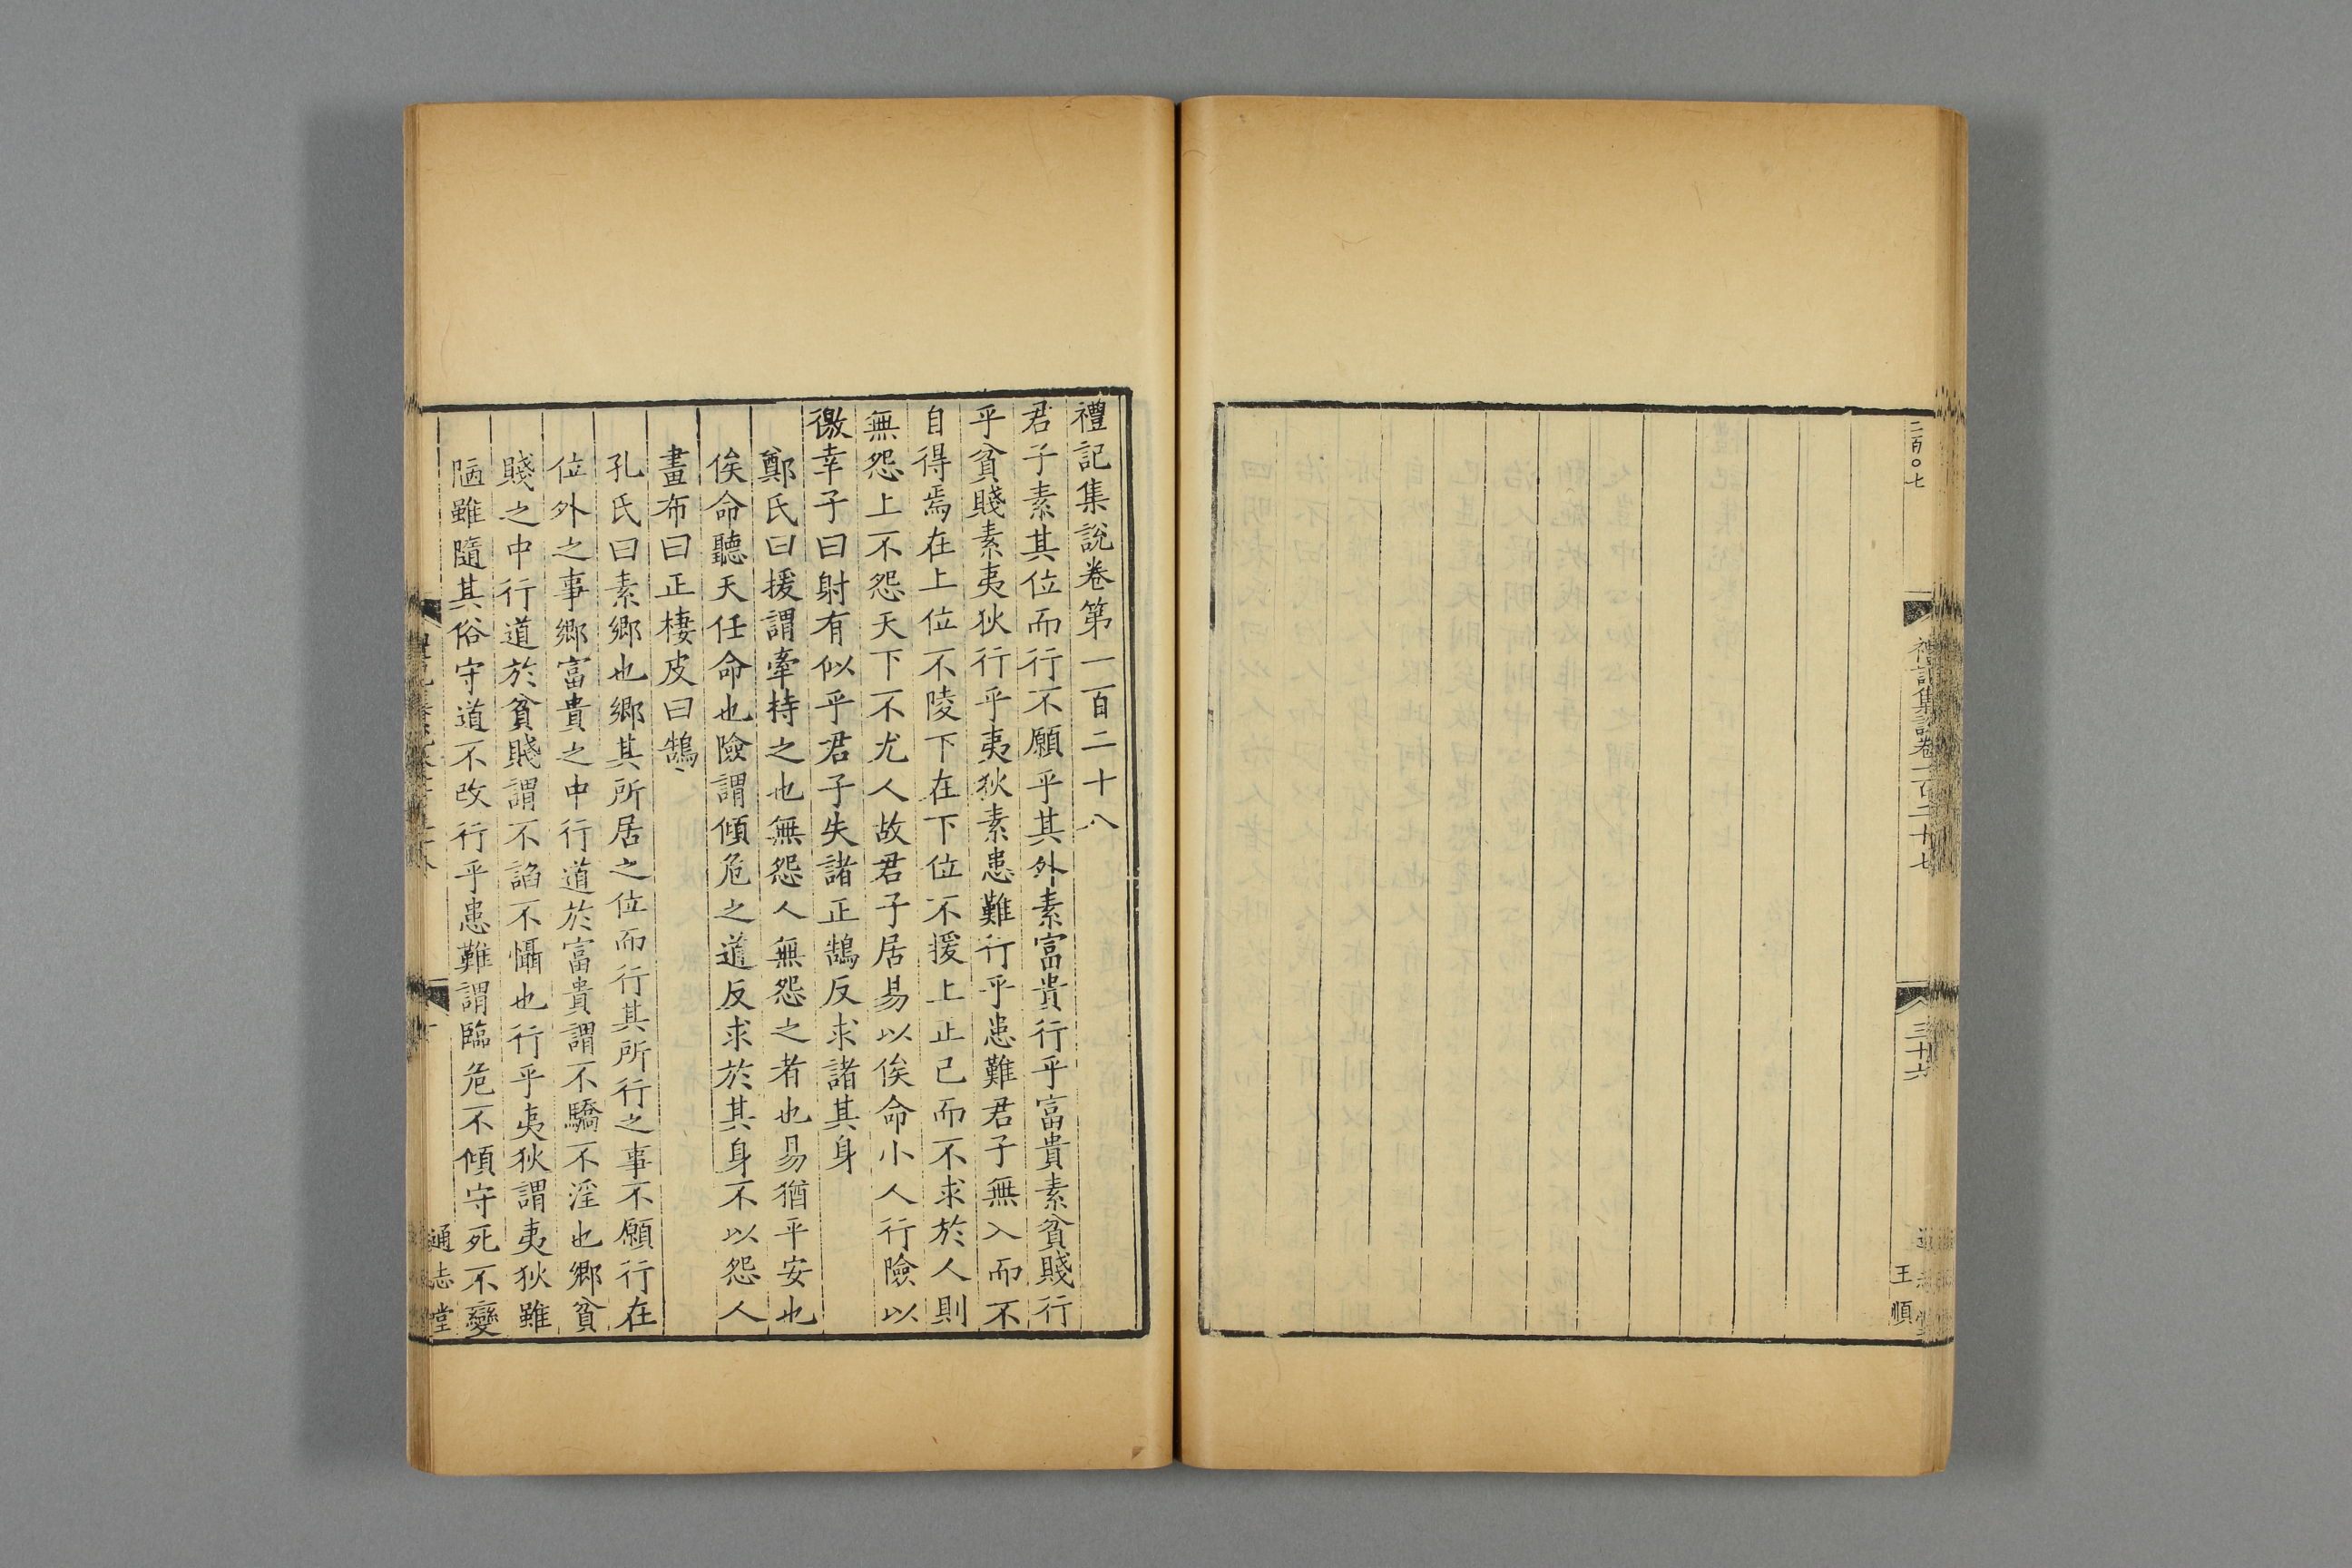 二百〇七
禮記集說卷一百二十七
三十六
王順
禮記集說卷第一百二十八
君子素其位而行不願乎其外素富貴行乎富貴素貧賤行
乎貧賤素夷狄行乎夷狄素患難行乎患難君子無入而不
自得焉在上位不陵下在下位不援上正己而不求於人則
無怨上不怨天下不尤人故君子居易以俟命小人行險以
徼幸子曰射有似乎君子失諸正鵠反求諸其身
鄭氏曰援謂牽持之也無怨人無怨之者也易猶平安也
俟命聽天任命也險謂傾危之道反求於其身不以怨人
畫布曰正棲皮曰鵠
孔氏曰素鄉也鄉其所居之位而行其所行之事不願行在
位外之事鄉富貴之中行道於富貴謂不驕不淫也鄉貧
賤之中行道於貧賤謂不諂不懾也行乎夷狄謂夷狄雖
陋雖隨其俗守道不改行乎患難謂臨危不傾守死不變
通志堂